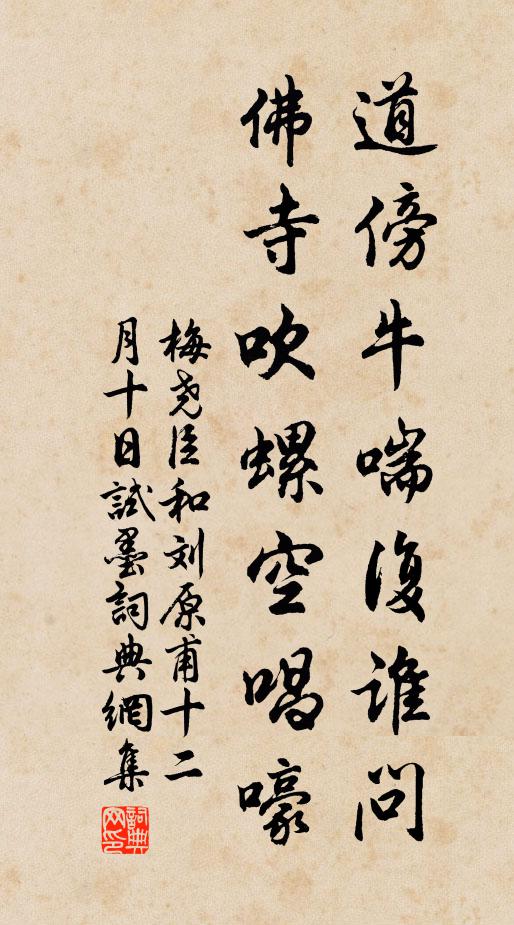 道傍牛喘復谁问
佛寺吹螺空唱嚎
梅尧臣和刘原甫十二
月十日試墨詞典網集
詞典
网印